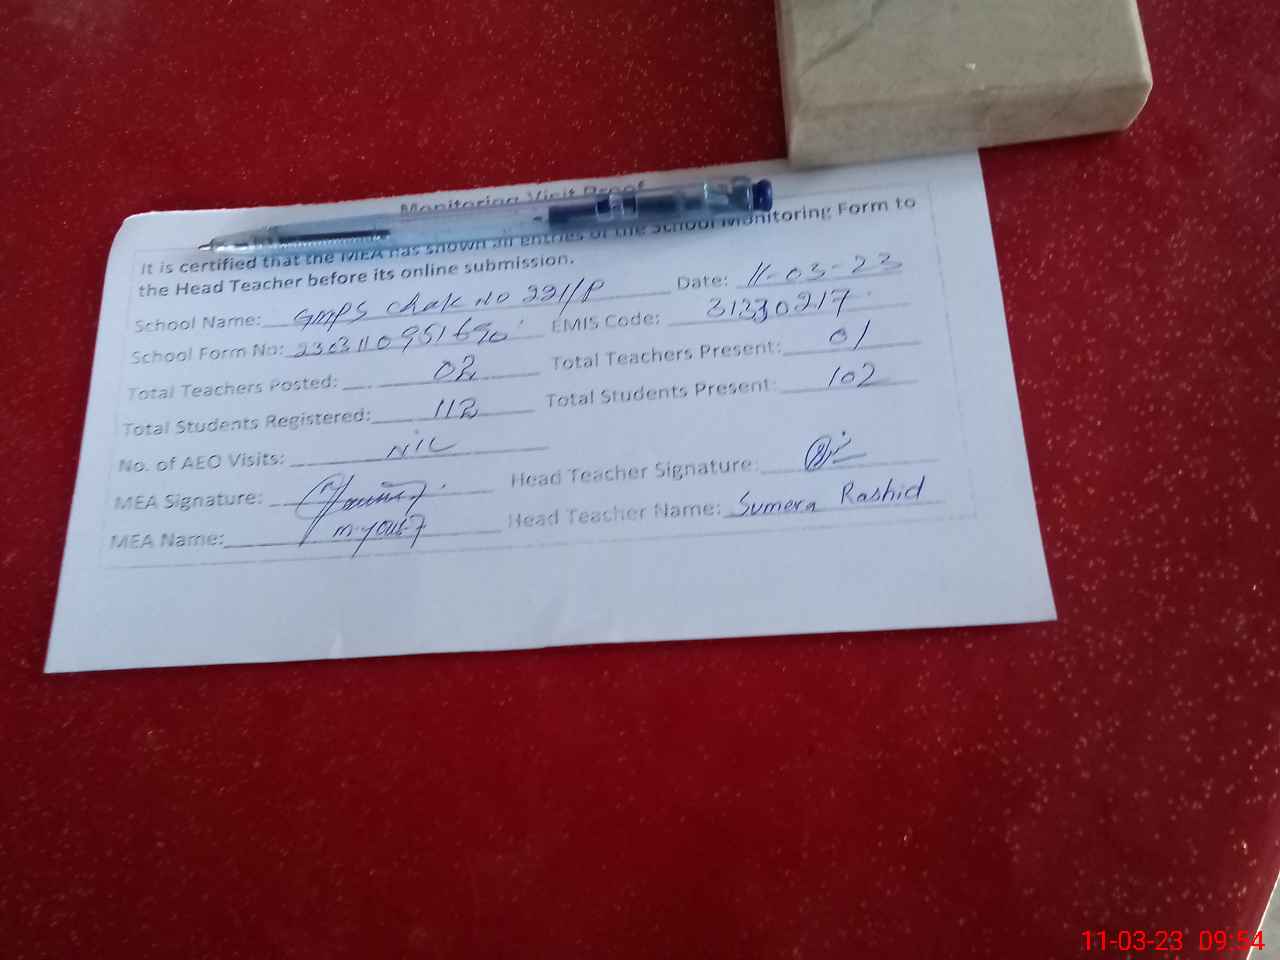 Monitoring Visit Proof
It is certified that the MEA has shown all entries of the School Monitoring Form to
the Head Teacher before its online submission.
School Name: GMPS Chak No 221/P Date: 11-03-23
School Form No: 2303110951690 EMIS Code: 31330217
Total Teachers Posted: 02 Total Teachers Present: 01
Total Students Registered: 112 Total Students Present: 102
No. of AEO Visits: NIL
MEA Signature: Head Teacher Signature:
MEA Name: M. Yousaf Head Teacher Name: Sumera Rashid
11-03-23 09:54